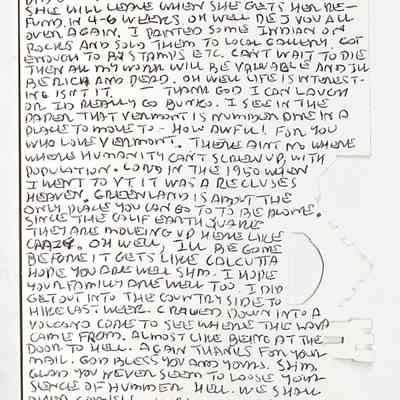 SHE WILL LEAVE WHEN SHE GETS HER RE-
FUND IN 4-6 WEEKS. OH WELL DEJ VOU ALL
OVER AGAIN. I PAINTED SOME INDIAN ON
ROCKS AND SOLD THEM TO LOCAL GALLERY. GOT
ENOUGH TO BUY STAMPS ETC. CAN'T WAIT TO DIE
THEN ALL MY WORK WILL BE VALUABLE AND I'LL
BE RICH AND DEAD. OH WELL LIFE IS INTEREST-
ING ISN'T IT. THANK GOD I CAN LAUGH
OR I'D REALLY GO BUNKO. I SEE IN THE
PAPER THAT VERMONT IS NUMBER ONE IN A
PLACE TO MOVE TO - HOW AWFUL! FOR YOU
WHO LOVE VERMONT. THERE AINT NO WHERE
WHERE HUMANITY CAN'T SCREW UP, WITH
POPULATION. LORD IN THE 1950 WHEN
I WENT TO VT. IT WAS A RECLUSES
HEAVEN. GREENLAND IS ABOUT THE
ONLY PLACE YOU CAN GO TO TO BE ALONE.
SINCE THE CALIF EARTH QUAKE
THEY ARE MOVEING UP HERE LIKE
CRAZY. OH WELL, I'LL BE GONE
BEFORE IT GETS LIKE CALCUTTA
HOPE YOU ARE WELL SHM. I HOPE
YOUR FAMILY ARE WELL TOO. I DID
GET OUT INTO THE COUNTRY SIDE TO
HIKE LAST WEEK. CRAWED DOWN INTO A
VOLCANO CORE TO SEE WHERE THE WAR
CAME FROM. ALMOST LIKE BEING AT THE
DOOR TO HELL. AGAIN THANKS FOR YOUR
MAIL. GOD BLESS YOU AND YOURS. SHM,
GLAD YOU NEVER SEEM TO LOOSE YOUR
SENCE OF HUMMER HELL. WE SHALL